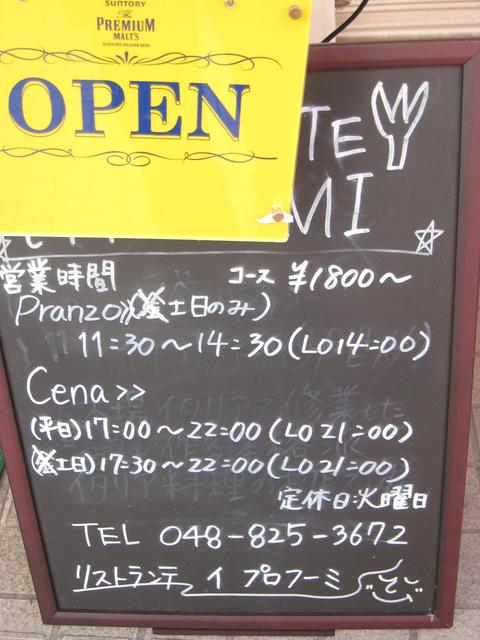 SUNTORY
The
PREMIUM
MALT'S
OPEN
TE
MI
営業時間 コース ¥1800〜
Pranzo>>(土日のみ)
11:30〜14:30(LO14:00)
Cena>>
(平日)17:00〜22:00(LO21:00)
(土日)17:30〜22:00(LO21:00)
定休日:火曜日
TEL 048-825-3672
リストランテ イ プロフーミ